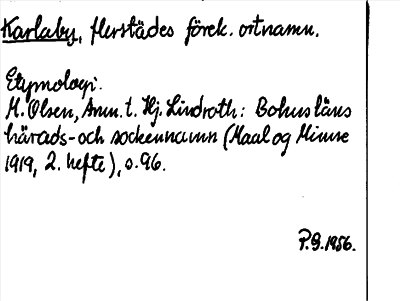 Karlaby, flerstädes förek. ortnamn.
Etymologi:
M. Olsen, Anm. t. Hj. Lindroth: Bohusläns
härads- och sockennamn (Maal og Minne
1919, 2. hefte), s. 96.
P.G. 1956.